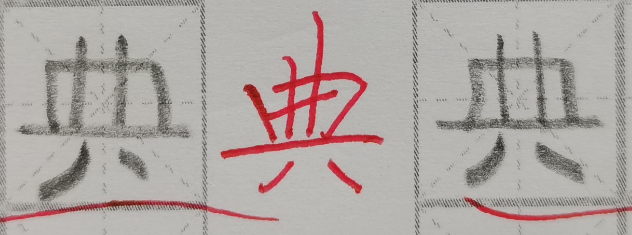 典 典 典